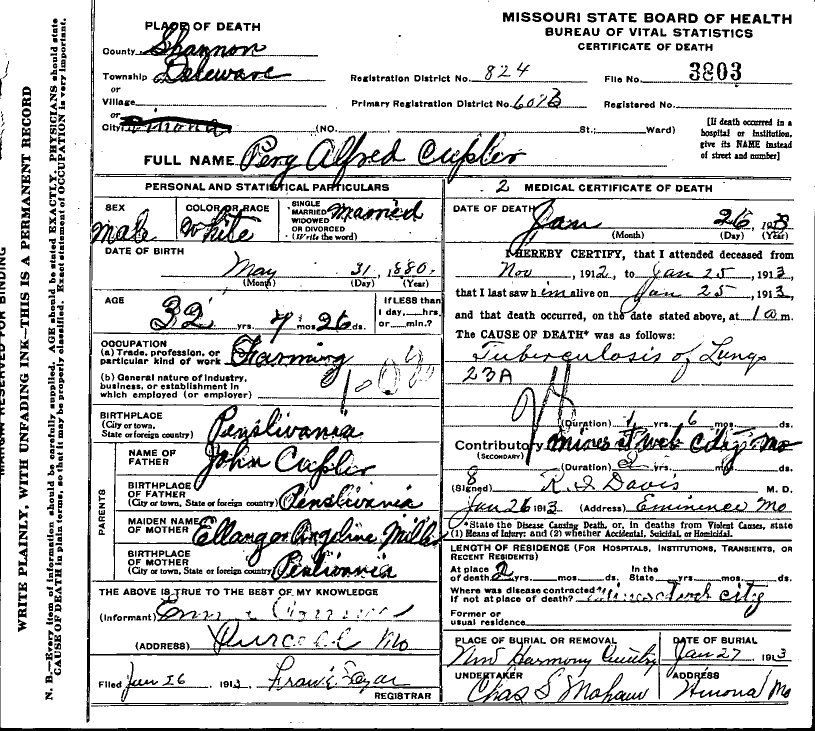 MISSOURI STATE BOARD OF HEALTH
BUREAU OF VITAL STATISTICS
CERTIFICATE OF DEATH
PLACE OF DEATH
County Shannon
Township Deleware
or
Village
or
City
(NO. St.; Ward)
Registration District No. 824
File No. 3803
Primary Registration District No.
Registered No.
[If death occurred in a
hospital or institution,
give its NAME instead
of street and number]
FULL NAME Pery Alfred Cupler
PERSONAL AND STATISTICAL PARTICULARS
SEX
Male
COLOR OR RACE
White
SINGLE
MARRIED
WIDOWED
OR DIVORCED
(Write the word)
Married
DATE OF BIRTH
May 31, 1880.
(Month) (Day) (Year)
AGE
32 yrs. 7 mos. 26 ds.
If LESS than
1 day,....hrs.
or.....min.?
OCCUPATION
(a) Trade, profession, or
particular kind of work Farming
(b) General nature of industry,
business, or establishment in
which employed (or employer)
BIRTHPLACE
(City or town,
State or foreign country) Penslivania
PARENTS
NAME OF
FATHER John Cupler
BIRTHPLACE
OF FATHER
(City or town, State or foreign country) Penslivania
MAIDEN NAME
OF MOTHER Ellang or Angeline Miller
BIRTHPLACE
OF MOTHER
(City or town, State or foreign country)
THE ABOVE IS TRUE TO THE BEST OF MY KNOWLEDGE
(Informant)
(ADDRESS) Purcell Mo
Filed Jan 26, 1913
REGISTRAR
2 MEDICAL CERTIFICATE OF DEATH
DATE OF DEATH
Jan 26 1913
(Month) (Day) (Year)
I HEREBY CERTIFY, that I attended deceased from
Nov, 1912, to Jan 25, 1913,
that I last saw him alive on Jan 25, 1913,
and that death occurred, on the date stated above, at 1 a m.
The CAUSE OF DEATH* was as follows:
Tuberculosis of Lungs
23A
(Duration) 1 yrs. 6 mos. ds.
Contributory Mines at Web City Mo
(SECONDARY)
(Duration) 2 yrs. mos. ds.
8
(Signed) R. I Davis M. D.
Jan 26 1913 (Address) Eminence Mo
*State the Disease Causing Death, or, in deaths from Violent Causes, state
(1) Means of Injury; and (2) whether Accidental, Suicidal, or Homicidal.
LENGTH OF RESIDENCE (FOR HOSPITALS, INSTITUTIONS, TRANSIENTS, OR
RECENT RESIDENTS)
At place
of death 2 yrs. mos. ds.
In the
State yrs. mos. ds.
Where was disease contracted
if not at place of death? Mines at web city
Former or
usual residence
PLACE OF BURIAL OR REMOVAL
New Harmony
DATE OF BURIAL
Jan 27 1913
UNDERTAKER
Chas S Mahan
ADDRESS
Winona Mo
MARGIN RESERVED FOR BINDING
WRITE PLAINLY, WITH UNFADING INK—THIS IS A PERMANENT RECORD
N. B.—Every item of information should be carefully supplied. AGE should be stated EXACTLY. PHYSICIANS should state
CAUSE OF DEATH in plain terms, so that it may be properly classified. Exact statement of OCCUPATION is very important.